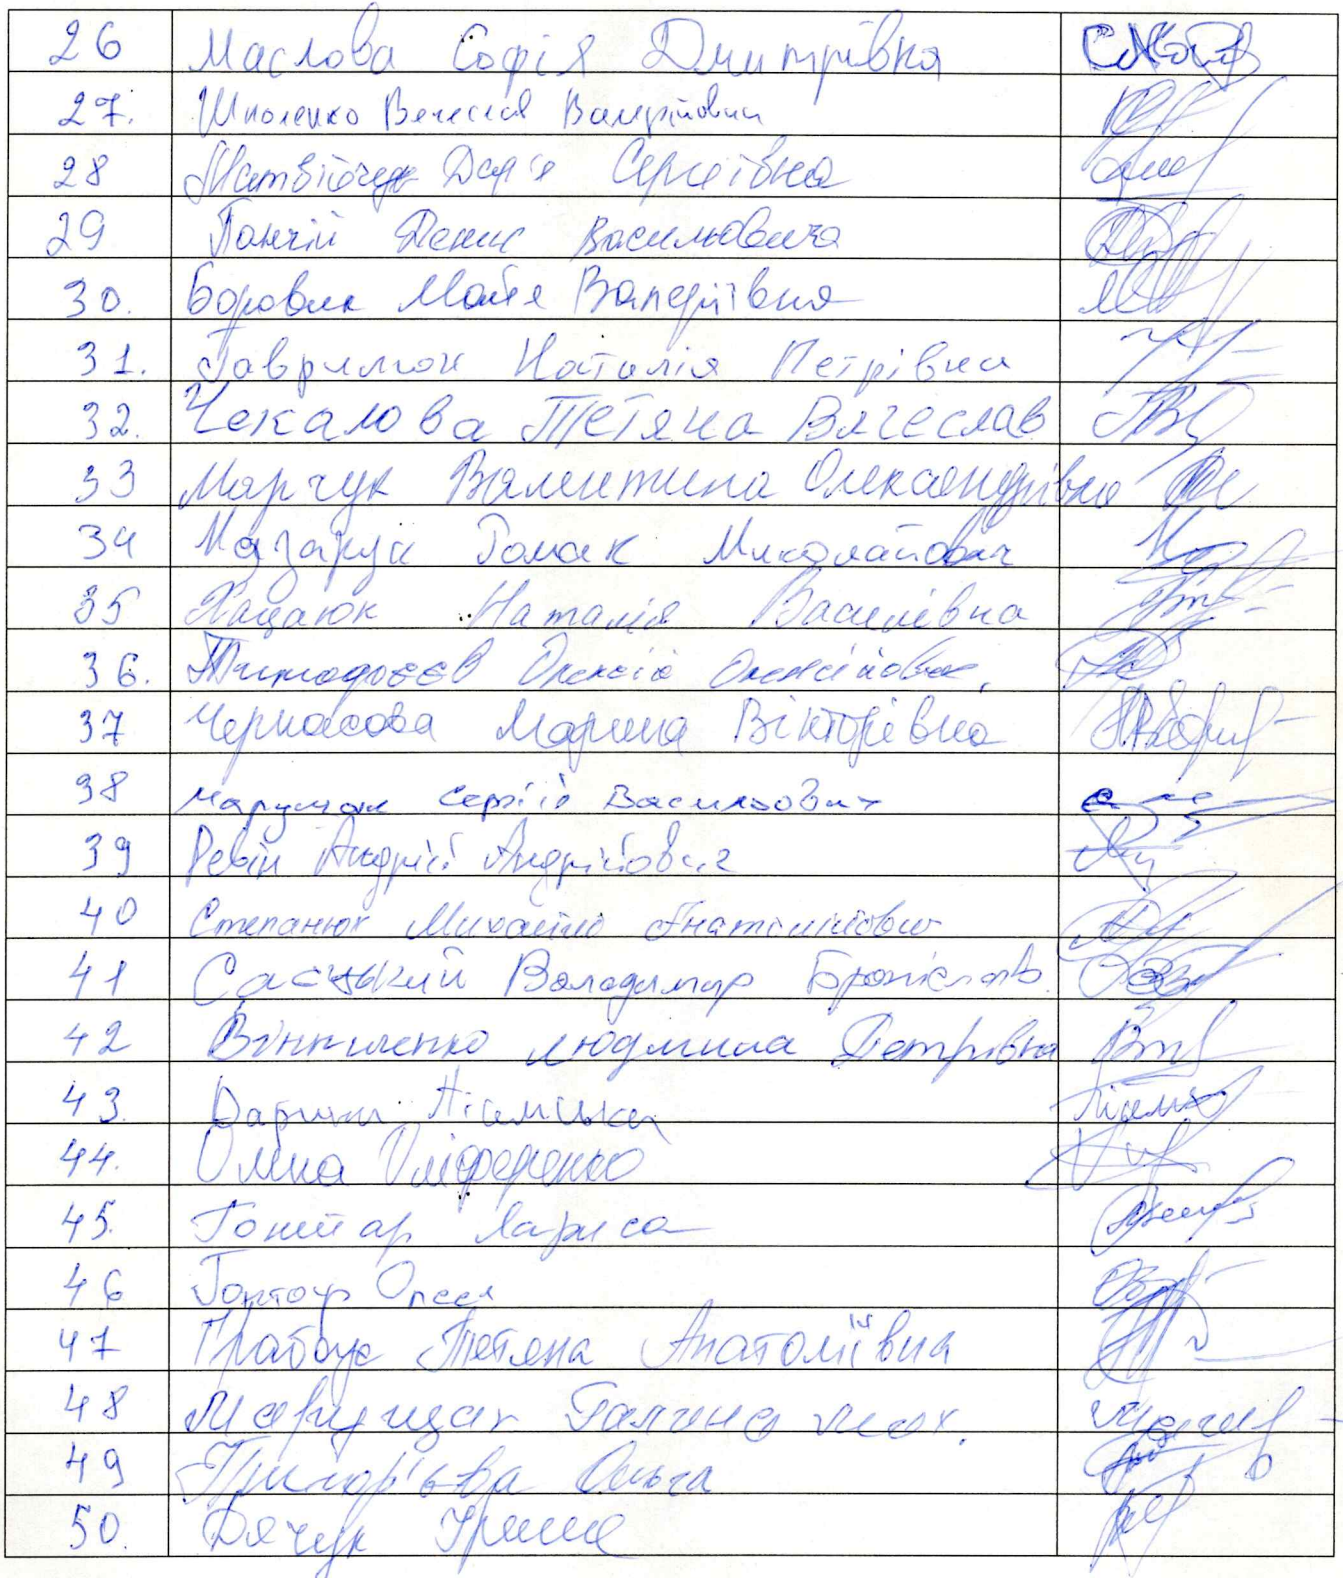 26 Маслова Софія Дмитрівна
27. Шполенко Вячеслав Валерійович
28 Матвійчук Дар'я Сергіївна
29 Панчій Денис Васильович
30. Боровик Майя Валеріївна
31. Гаврилюк Наталія Петрівна
32. Чекалова Тетяна Вячеслав
33 Марчук Валентина Олександрівна
34 Назарук Роман Миколайович
35 Наталія Василівна
36. Тимофеєв Олексій Олексійович
37 Черкасова Марина Вікторівна
38 Марущак Сергій Васильович
39 Ревін Андрій Андрійович
40 Степанюк Михайло Анатолійович
41 Володимир Броніслав.
42 Людмила Петрівна
43.
44. Олена
45. Гонтар Лариса
46 Гонтар Олеся
47 Грабчук Тетяна Анатоліївна
48 Марущак Галина
49 Григор'єва Ольга
50. Дячук Ірина